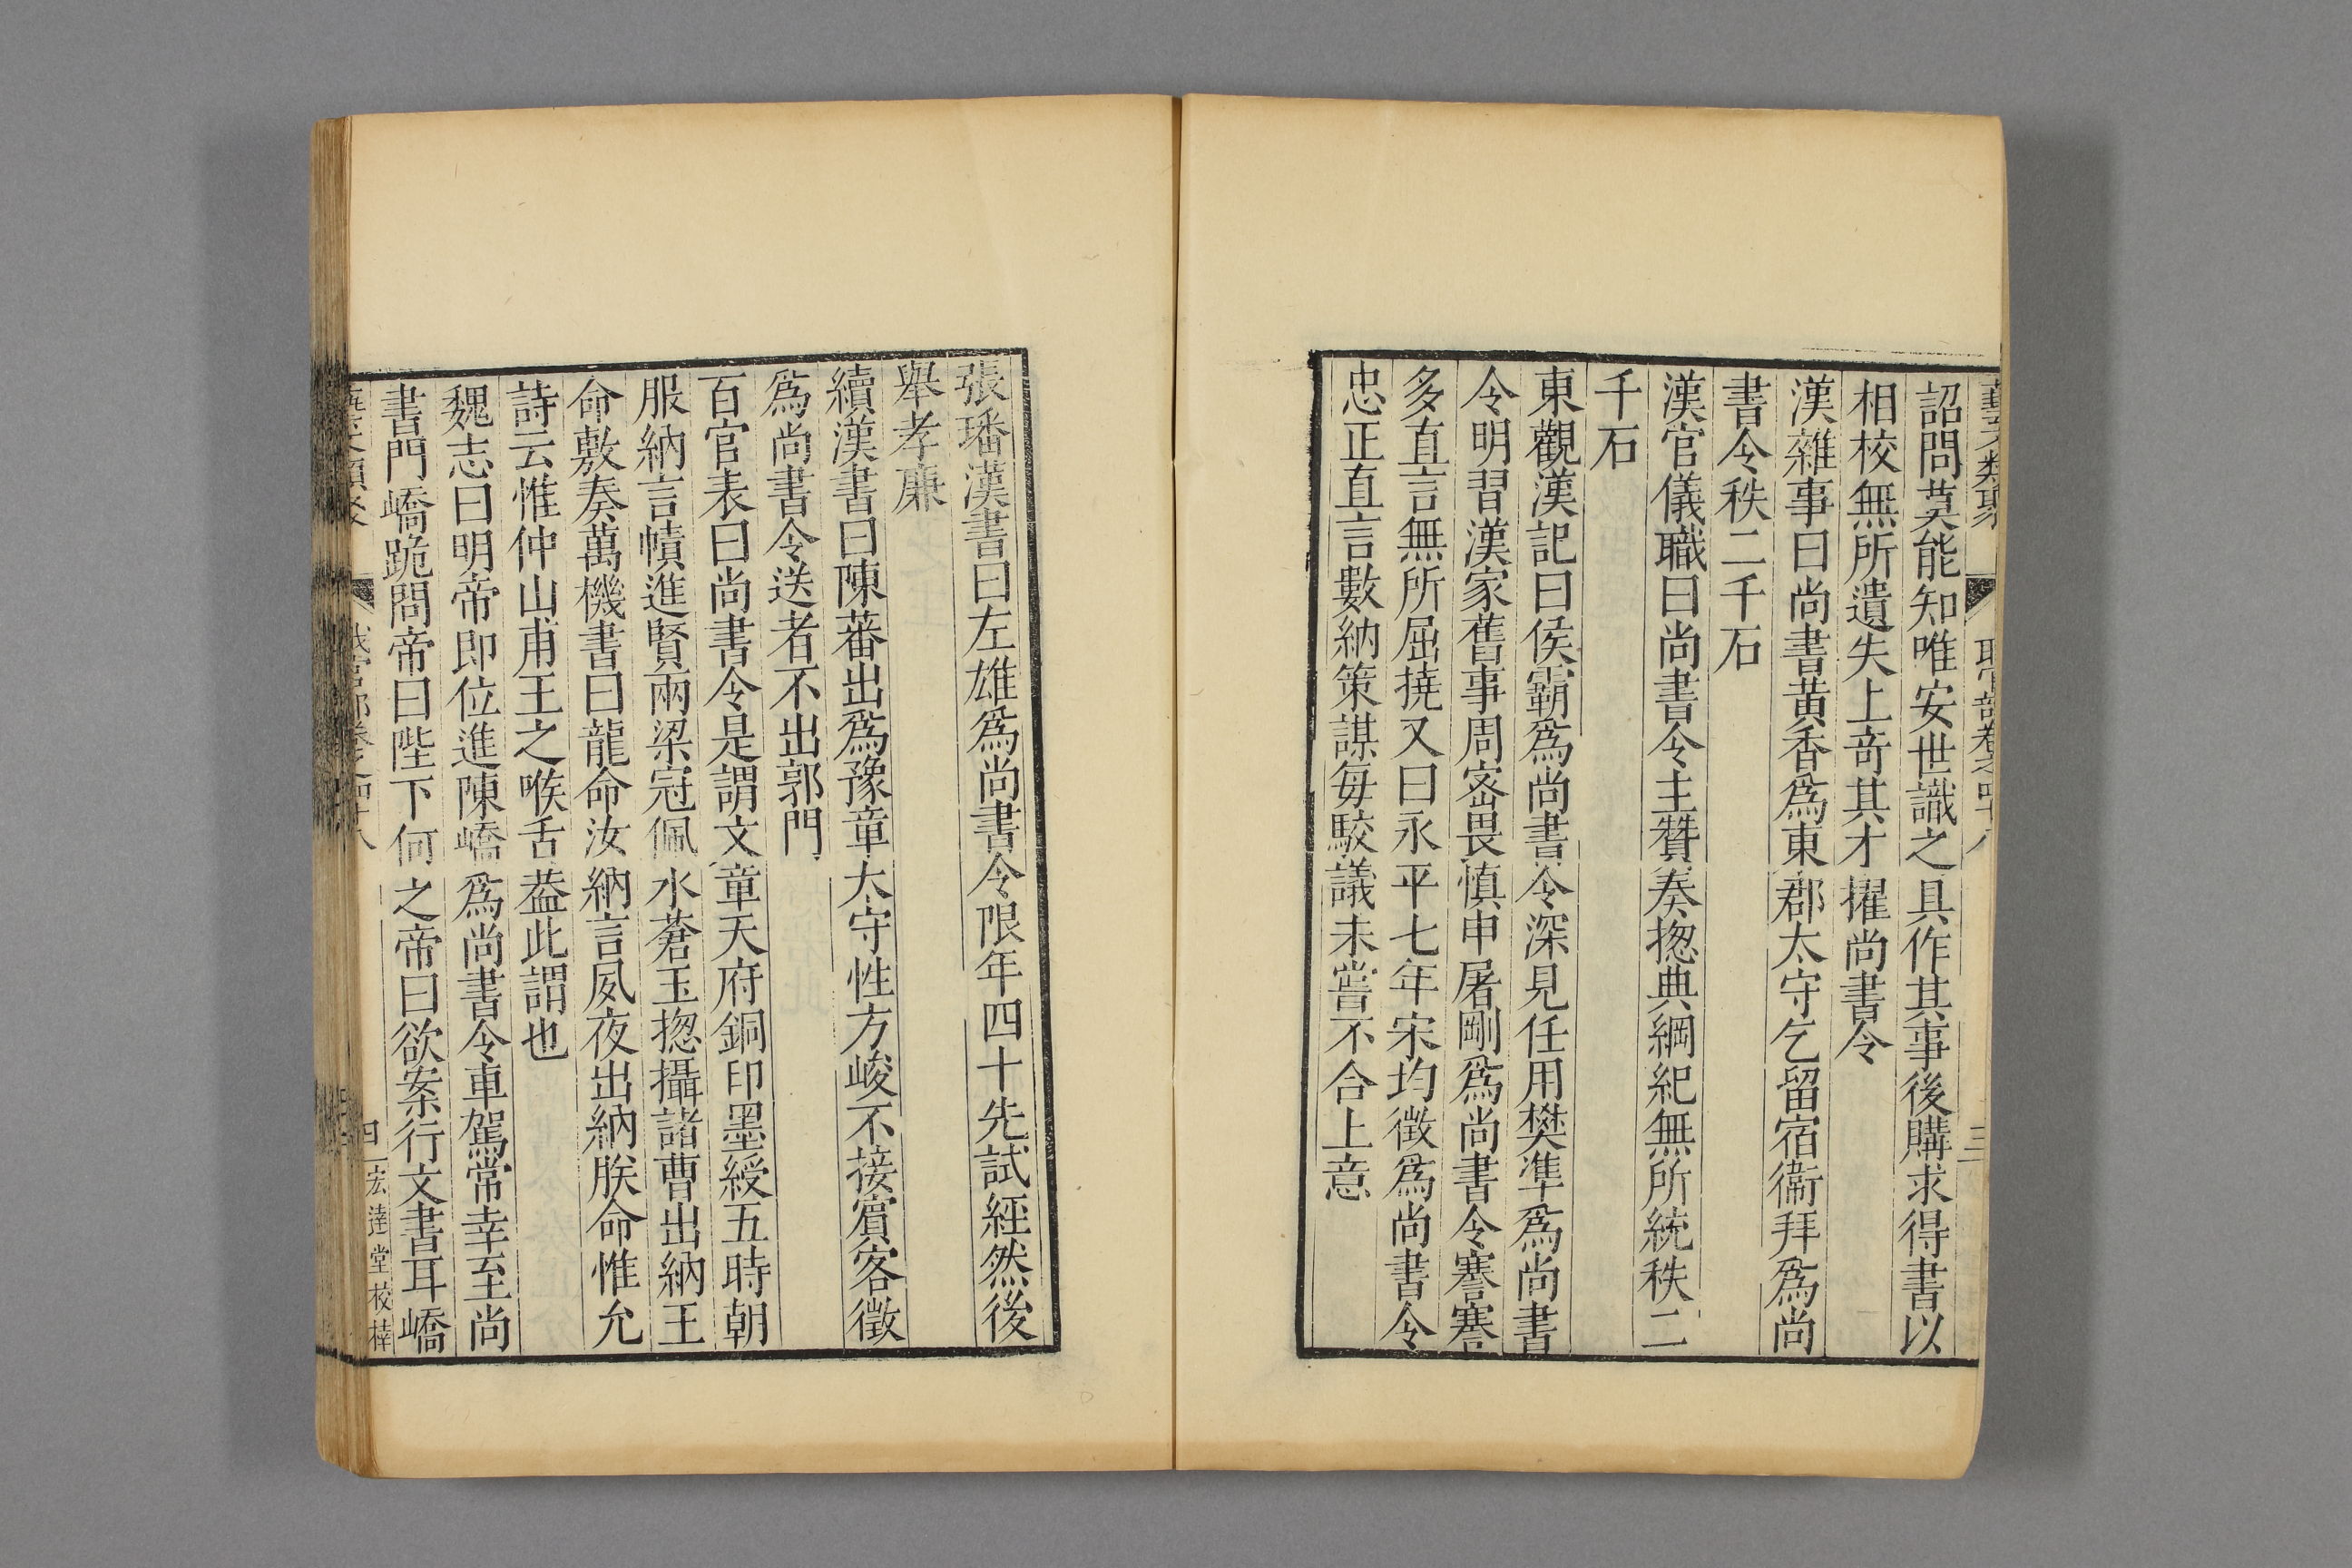 藝文類聚 職官部卷之四十八 三
詔問莫能知唯安世識之具作其事後購求得書以
相校無所遺失上奇其才擢尚書令
漢雜事曰尚書黃香爲東郡太守乞留宿衞拜爲尚
書令秩二千石
漢官儀職曰尚書令主贊奏揔典綱紀無所統秩二
千石
東觀漢記曰侯霸爲尚書令深見任用樊準爲尚書
令明習漢家舊事周宻畏慎申屠剛爲尚書令謇謇
多直言無所屈撓又曰永平七年宋均徵爲尚書令
忠正直言數納策謀毎駮議未嘗不合上意
張璠漢書曰左雄爲尚書令限年四十先試經然後
舉孝廉
續漢書曰陳蕃出爲豫章太守性方峻不接賔客徵
爲尚書令送者不出郭門
百官表曰尚書令是謂文章天府銅印墨綬五時朝
服納言幘進賢兩梁冠佩水蒼玉揔攝諸曹出納王
命敷奏萬機書曰龍命汝納言夙夜出納朕命惟允
詩云惟仲山甫王之喉舌葢此謂也
魏志曰明帝即位進陳嶠爲尚書令車駕常幸至尚
書門嶠跪問帝曰陛下何之帝曰欲案行文書耳嶠
藝文類聚 職官部卷之四十八 四 宏達堂校梓